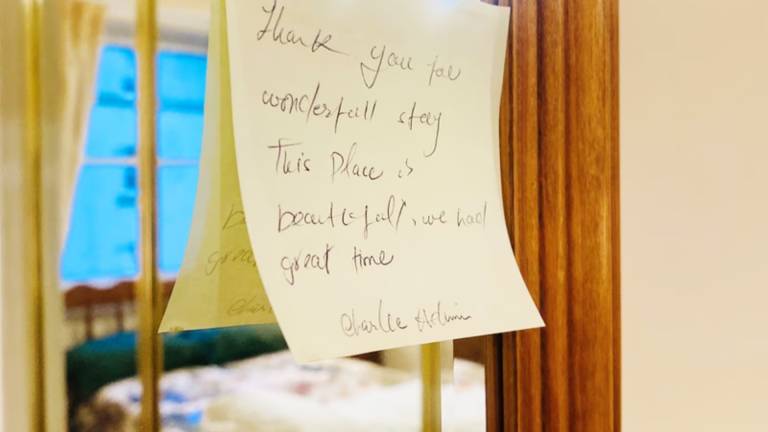 Thank you for
wonderfull stay
This Place is
beautifull, we had
great time
Charlie